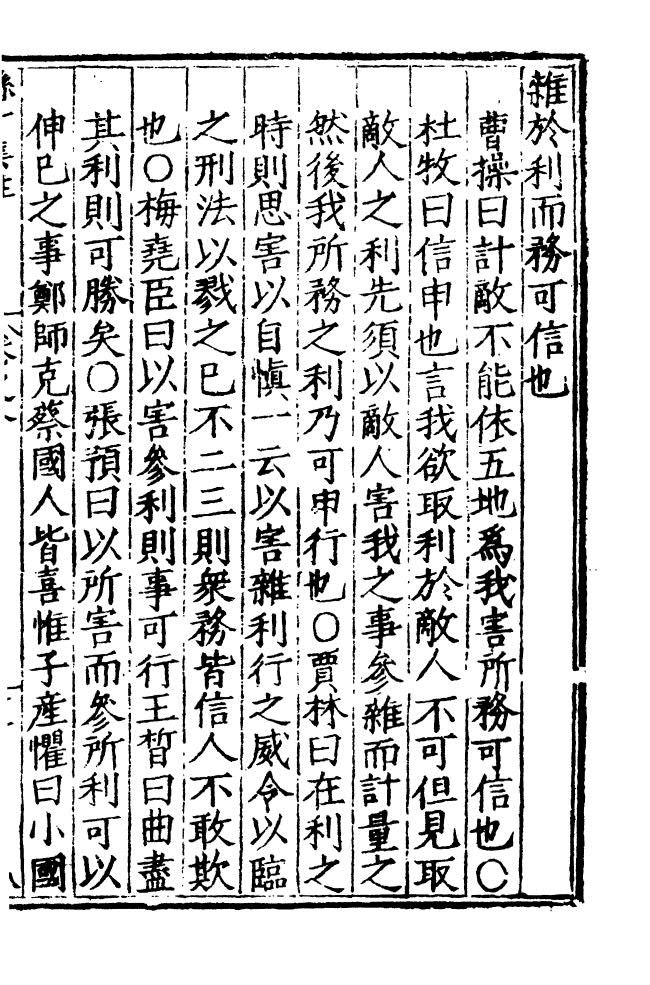 雜於利而務可信也
曹操曰計敵不能依五地爲我害所務可信也○
杜牧曰信申也言我欲取利於敵人不可但見取
敵人之利先須以敵人害我之事參雜而計量之
然後我所務之利乃可申行也○賈林曰在利之
時則思害以自愼一云以害雜利行之威令以臨
之刑法以戮之已不二三則衆務皆信人不敢欺
也○梅堯臣曰以害參利則事可行王晳曰曲盡
其利則可勝矣○張預曰以所害而參所利可以
伸已之事鄭師克蔡國人皆喜惟子產懼曰小國